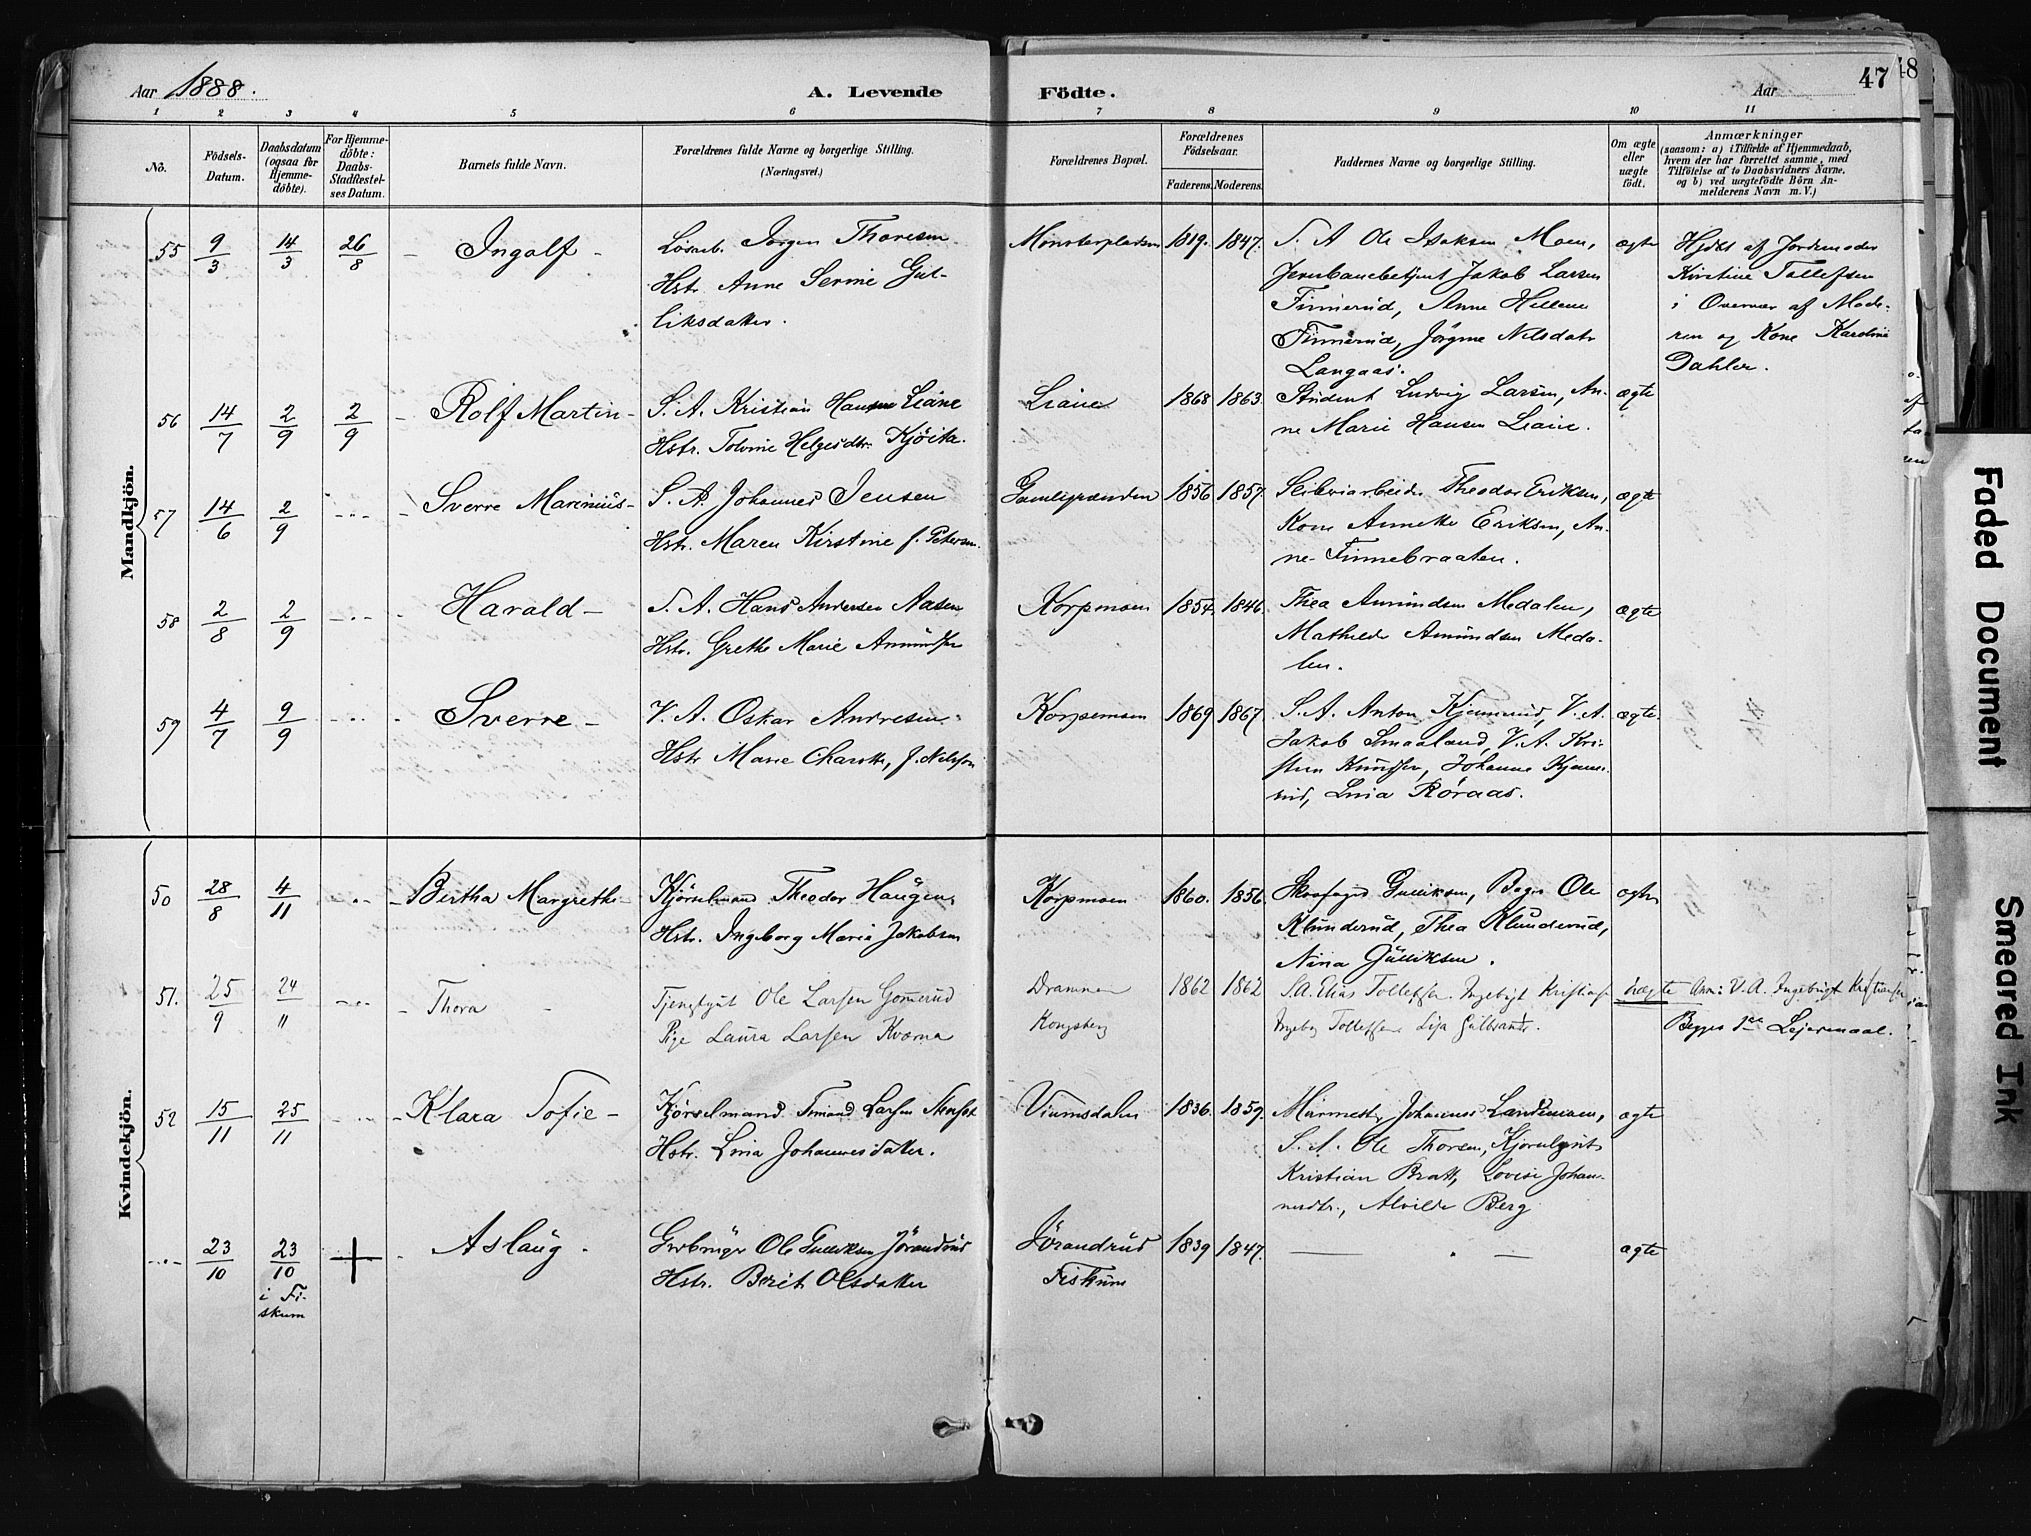 Aar 1888. A. Levende Födte. Aar 47
48
1 2 3 4 5 6 7 8 9 10 11
No.
Födsels-
Datum.
Daabsdatum
(ogsaa for
Hjemme-
döbte).
For Hjemme-
döbte:
Daabs-
Stadfæstel-
ses Datum.
Barnets fulde Navn.
Forældrenes fulde Navne og borgerlige Stilling.
(Næringsvei.)
Forældrenes Bopæl.
Forældrenes
Födselsaar.
Faderens. Moderens.
Faddernes Navne og borgerlige Stilling.
Om ægte
eller
uægte
födt.
Anmærkninger
(saasom: a) i Tilfælde af Hjemmedaab,
hvem der har forrettet samme, med
Tilföielse af to Daabsvidners Navne,
og b) ved uægtefödte Börn An-
melderens Navn m. V.)
Mandkjön.
55 9/3 14/3 26/8 - Ingolf -
Jørgen Thoresen
Hstr. Anne Serine Gul-
liksdatter.
1819. 1847.
S. A Ole Isaksen Moen,
Jernbanebetjent Jakob Larsen
Finnerud, Anne Hellene
Finnerud, Jörgine Nilsdatr
Langaas.
ægte
Hjdbt af Jordemoder
Kirstine Tollefsen
i Overvær af Mode-
ren og Kone Karoline
Dahler.
56 14/7 2/9 2/9 - Rolf Martin -
S. A. Kristian Hansen Liane
Hstr. Tolvine Helgesdtr. Kjöita.
Liane 1868 1863.
Student Ludvig Larsen, An-
ne Marie Hansen Liane.
ægte
57 14/6 2/9 -"- - Sverre Marinius -
S. A. Johannes Jensen
Hstr. Maren Kirstine f. Petersen.
Gamlegrænden 1856 1857.
Theodor Eriksen,
Kone Annette Eriksen, An-
ne Finnebraaten.
ægte
58 2/8 2/9 -"- - Harald -
S. A. Hans Andersen Aasen
Hstr. Grethe Marie Amundsen
Korpmoen 1854. 1846.
Thea Amundsen Medalen,
Mathilde Amundsen Meda-
len.
ægte
59 4/7 9/9 -"- - Sverre -
V. A. Oskar Andresen
Hstr Marie Charotte, f. Nilsson
Korpemoen 1869 1867.
S. A. Anton Kjennerud, V. A.
Jakob Smaaland, V. A. Kri-
sten Knudsen, Johanne Kjenne-
rud, Lina Röraas.
ægte.
Kvindekjön.
50 28/8 4/11 -"- - Bertha Margrethe -
Kjörselmand Theodor Haugen,
Hstr. Ingeborg Marie Jakobsen
Korpmoen 1860. 1856.
Skovfoged Gulliksen, Bager Ole
Klunderud, Thea Klunderud,
Nina Gulliksen.
ægte
51. 25/9 24/11 -"- - Thora -
Tjenstgut Ole Larsen Gomerud
Pige Laura Larsen Kværna
Drammen
Kongsberg
1862 1862
S.A. Elias Tollefsen. Ingebrigt Kristians.
Ingebg Tollefsen Lisa Gulbrands.
uægte
Anm: V. A. Ingebrigt Kristiansen
Begges 1ste Leiermaal.
52 15/11 25/11 -"- - Klara Sofie -
Kjörselmand Larsen
Hstr. Lina Johannesdatter.
Viumsdalen 1836. 1859.
Murmester Johannes Landsmann,
S. A. Ole Thorsen,
Kristian Bratt, Lovise Johan-
nesdtr., Alvilde Berg
ægte
-"- 23/10 23/10 + - Aslaug.
i Fi-
skum
Grbruger Ole Gulliksen Jörandrud
Hstr. Berit Olsdatter
Jörandrud
Fiskum
1839 1847.
— " —
ægte
Faded Document
Smeared Ink